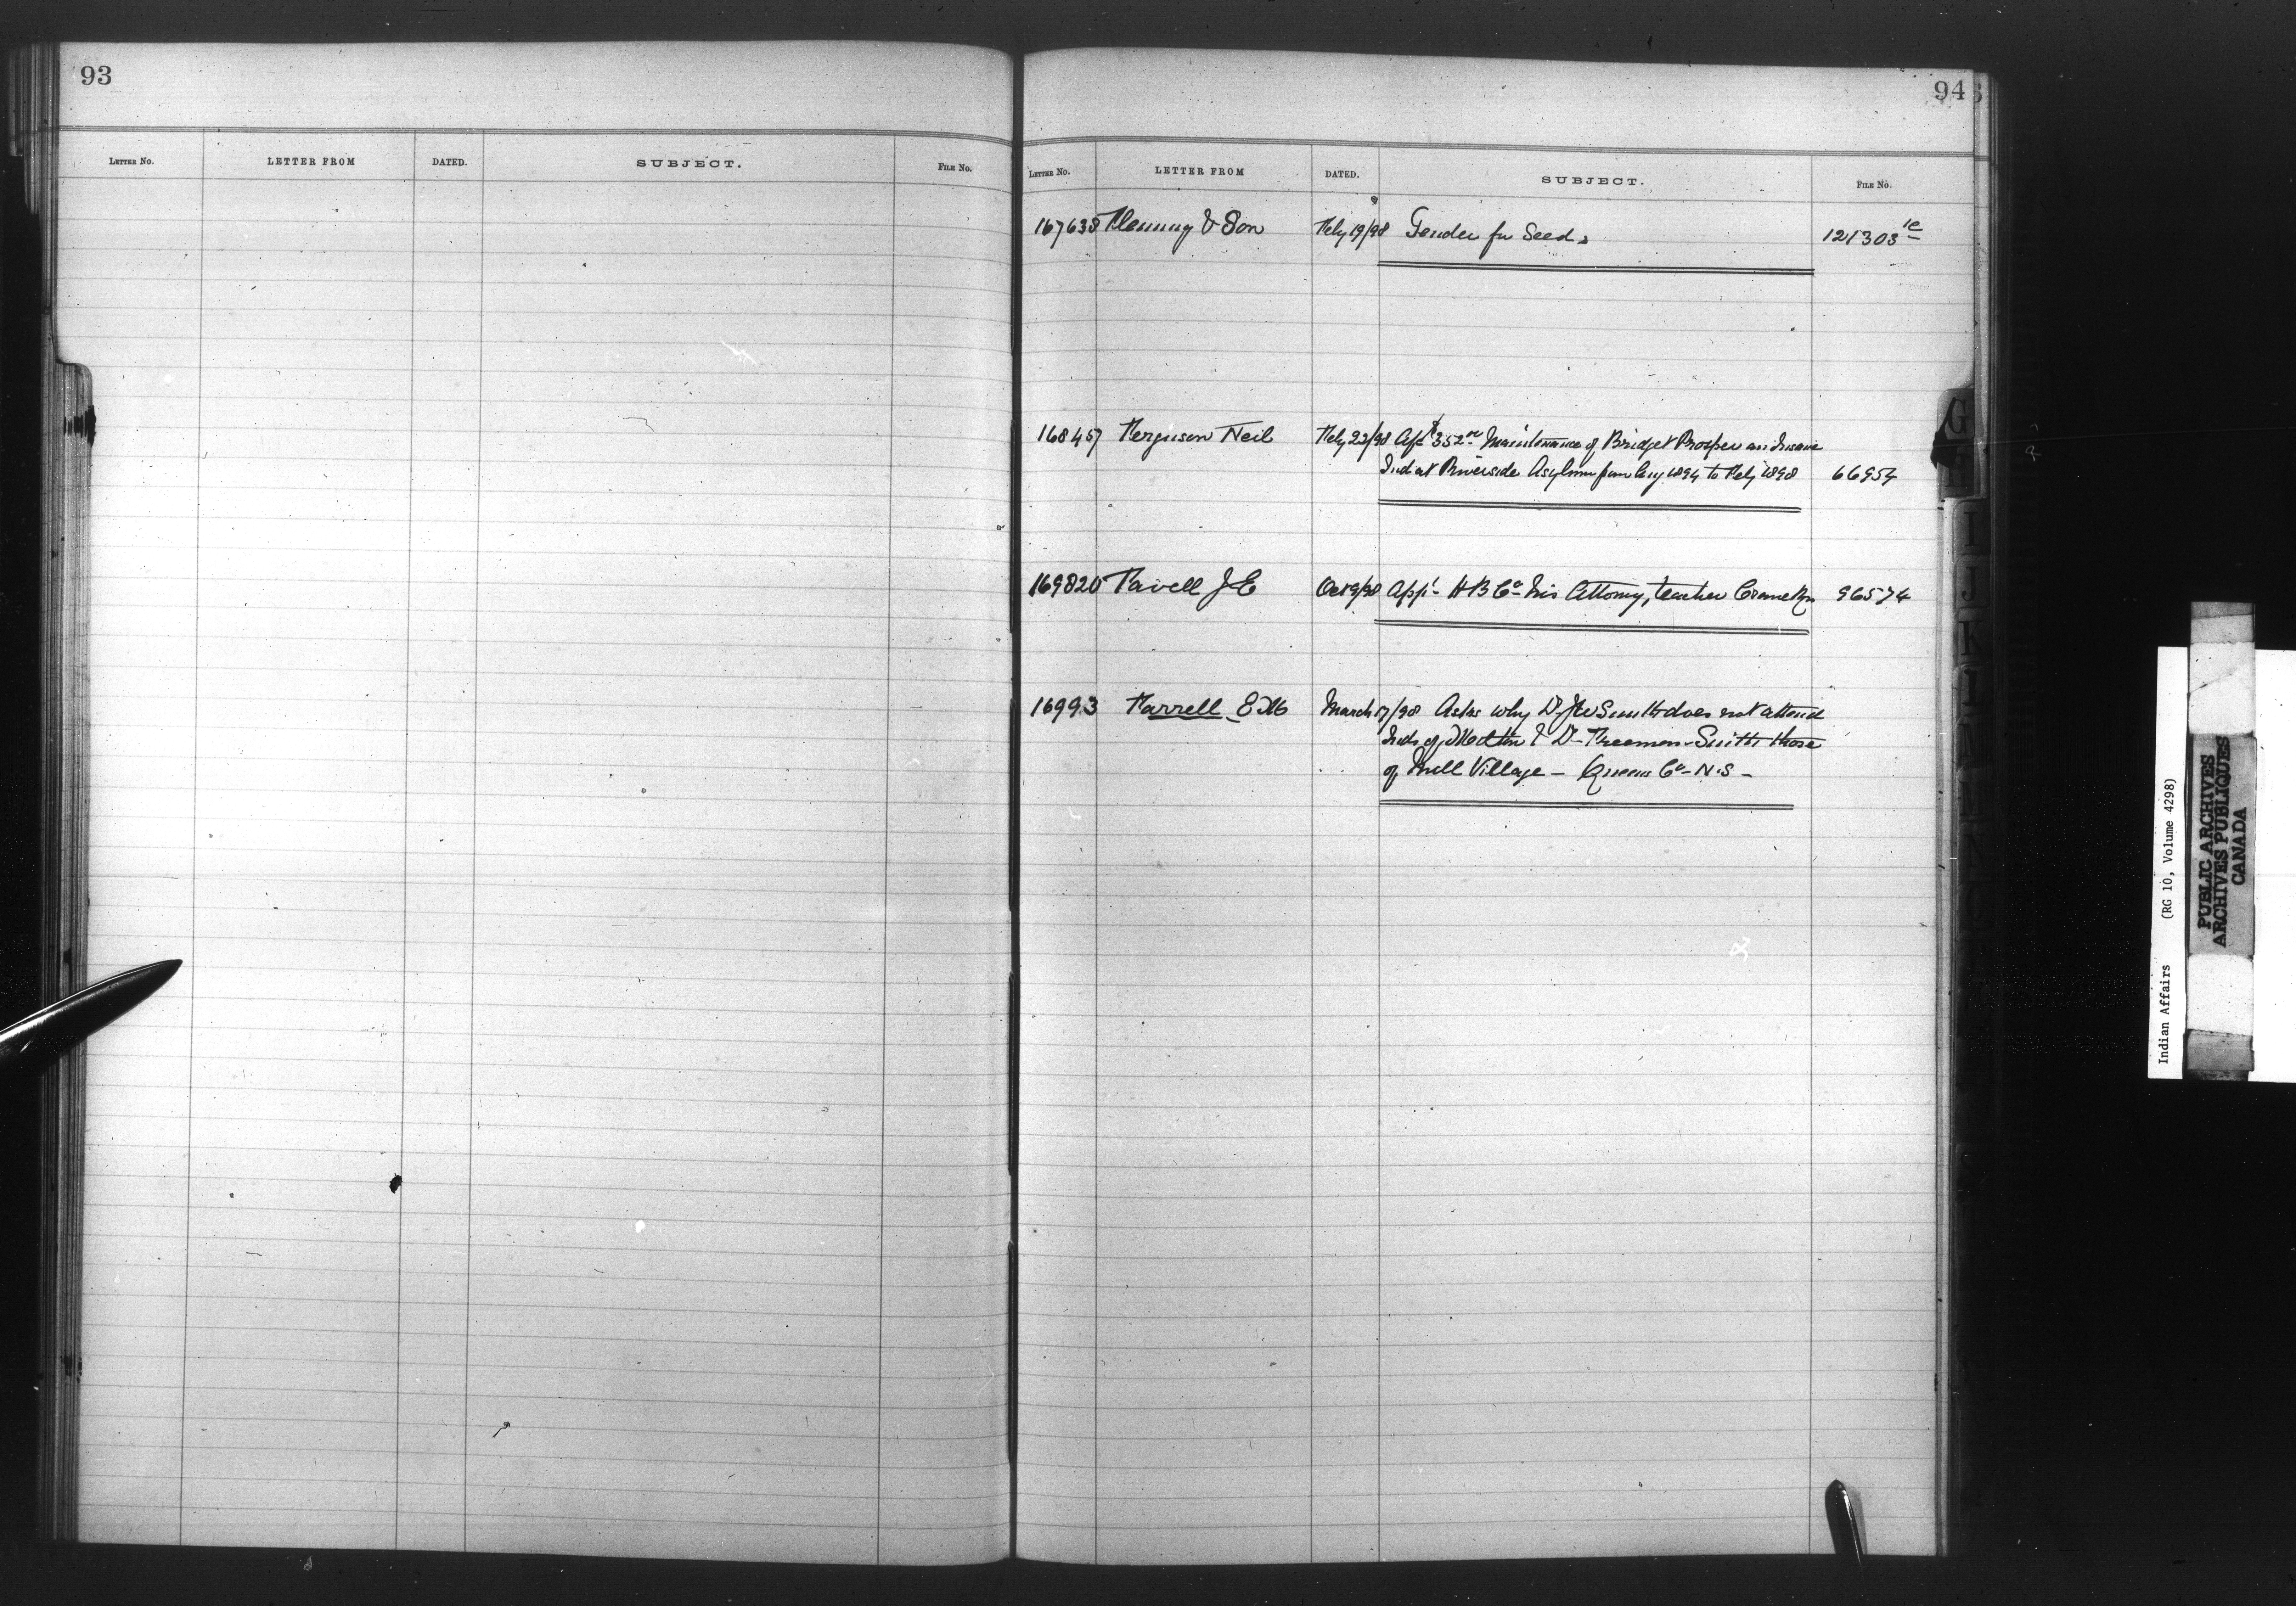 93
LETTER NO. LETTER FROM DATED. SUBJECT. FILE NO.
94
LETTER NO. LETTER FROM DATED. SUBJECT. FILE NO.
167638 Fleming & Son Feby 19/98 Tender for Seeds 121303 1c
168457 Ferguson Neil Feby 22/98 $352 Maintenance of Bridget Prosper an Insane
Ind at Riverside Asylum from Aug 1894 to Feby 1898 66954
169820 Favell J E Oct 9/98 App. H B Co his Attorny, teacher Crane Rn 96574
16993 Farrell E M March 17/98 Asks why Dr J W Smith does not attend
Inds of & Dr Freeman Smith those
of Mill Village - Queens Co - N.S -
G
I
J
K
L
M
Indian Affairs (RG 10, Volume 4298)
PUBLIC ARCHIVES
ARCHIVES PUBLIQUES
CANADA